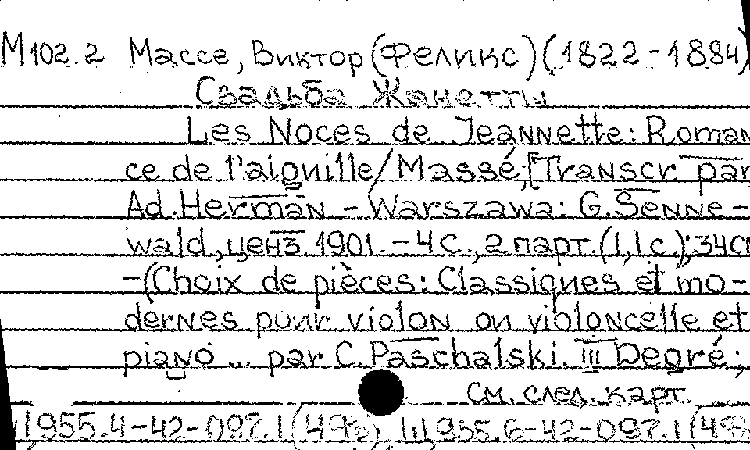 М102.2 Массе, Виктор (Феликс) (1822-1884)
Свадьба Жанетты
Les Noces de Jeannette: Roman
ce de l'aiguille/Massé, [Transcr par
Ad. Herman - Warszawa: G. Senne-
wald, ценз. 1901. - 4 с., 2 парт. (1,1 с.); 34см
-(Choix de pièces: Classiques et mo-
dernes pour violon ou violoncelle et
piano ... par C. Paschalski. III Degré;
см. след. карт.
955.4-42-097.1 955.6-42-097.1